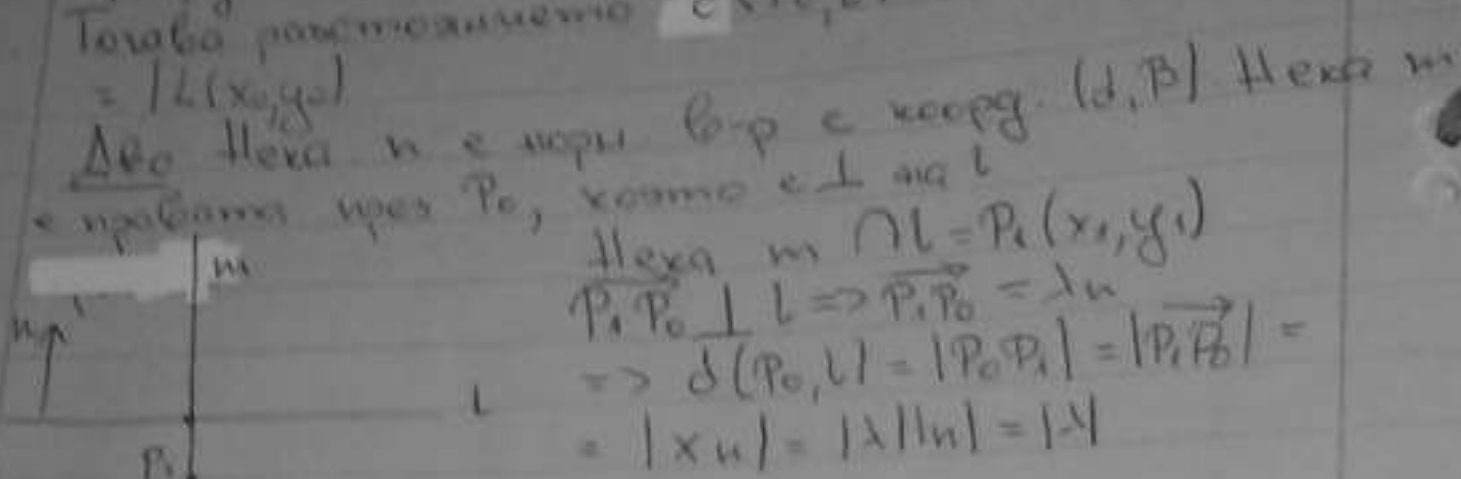 Тогава разстоянието е
= |L(x₀,y₀)|
Д-во Нека n е норм. в-р с коорд. (α,β) Нека m
е правата през P₀, която е ⊥ на l
Нека m ∩ l = P₁(x₁,y₁)
m
P₁P₀ ⊥ l => P₁P₀ = λn
n
=> d(P₀,l) = |P₀P₁| = |P₁P₀| =
l
= |λn| = |λ||n| = |λ|
P₁